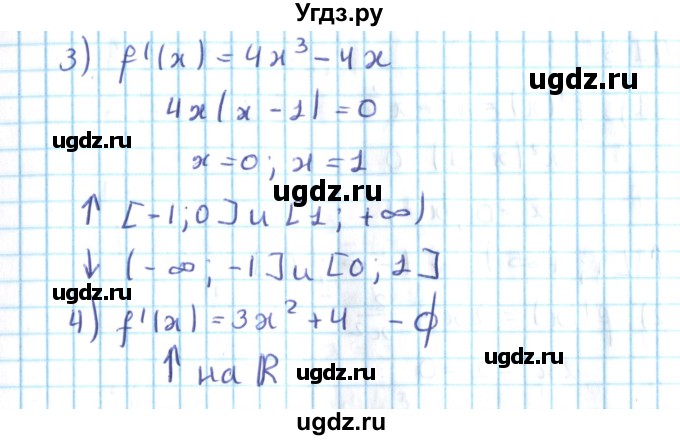 Угдз.ру
3) f'(x) = 4x³ - 4x
4x(x - 1) = 0
ugdz.ru
ugdz.ru
x = 0; x = 1
ugdz.ru
↑ [-1; 0] и [1; +∞)
ugdz.ru
↓ (-∞; -1] и [0; 1]
ugdz.ru
4) f'(x) = 3x² + 4 - ϕ
ugdz.ru
↑ на R
ugdz.ru
ugdz.ru